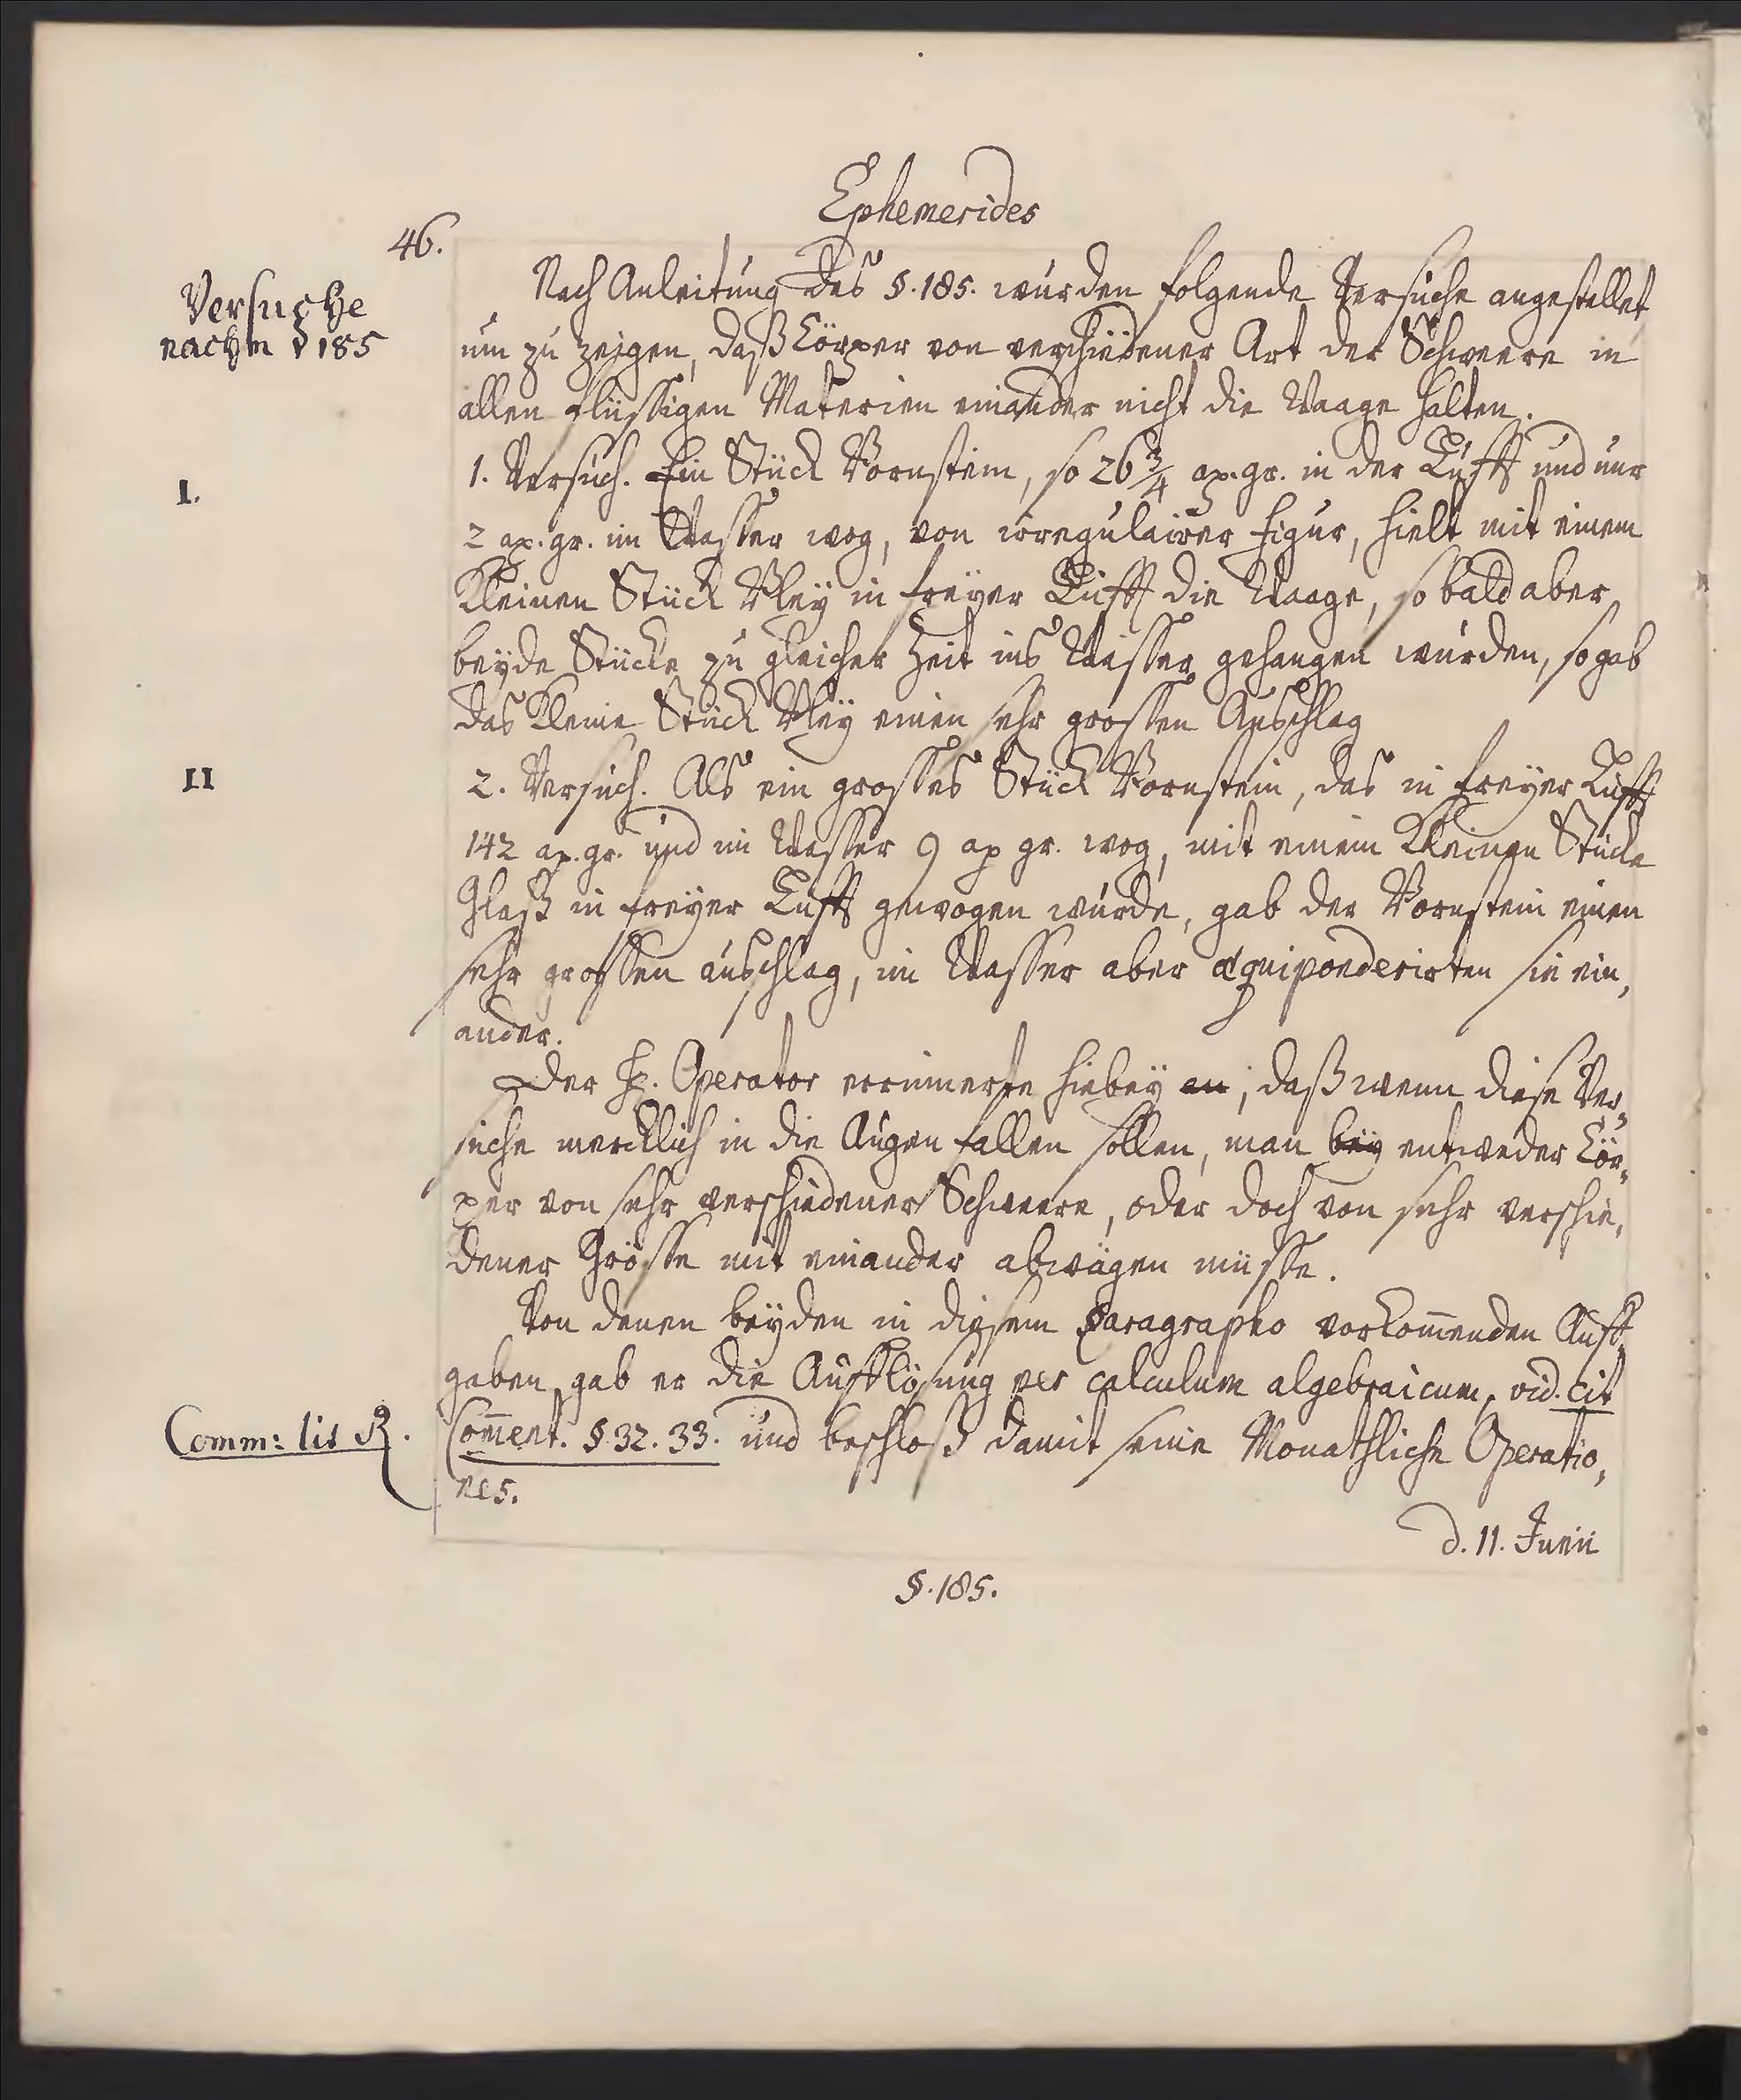 Ephemerides
46.
Versuche
nachm § 185
Nach Anleitung des §. 185. wurden folgende Versuche angestellet
um zu zeigen, daß Cörper von verschiedener Art der Schweere in
allen flüssigen Materien einander nicht die Waage halten.
I.
1. Versuch. Ein Stück Bornstein, so 26 3/4 ap. gr. in der Lufft und nur
2 ap. gr. im Wasser wog, von irregulairer Figur, hielt mit einem
kleinen Stück Bley in freyer Lufft die Waage, so bald aber
beyde Stücke zu gleicher Zeit ins Wasser gehangen wurden, so gab
das kleine Stück Bley einen sehr grossen Ausschlag
II
2. Versuch. Als ein grosses Stück Bornstein, das in freyer Lufft
142 ap. gr. und im Wasser 9 ap gr. wog, mit einem kleinen Stücke
Glaß in freyer Lufft gewogen wurde, gab der Bornstein einen
sehr grossen ausschlag, im Wasser aber æquiponderirten sie ein,
ander.
Der H. Operator errinnerte hiebey an, daß wenn diese Ver,
suche mercklich in die Augen fallen sollen, man bey entweder Cör,
per von sehr verschiedener Schweere, oder doch von sehr verschie,
dener Grösse mit einander abwägen müsse.
Von denen beyden in diesem Paragrapho vorkom̄enden Auff,
gaben gab er die Aufflösung per calculum algebraicum, vid. cit
Comm: lit R.
Com̄ent. §. 32. 33. und beschloß damit seine Monathliche Operatio,
nes.
d. 11. Junii
§. 185.